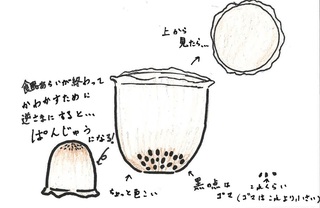 上から
見たら…
食器あらいが終わって
かわかすために
逆さまにすると…
ぱんじゅう
になる!
ちょっと色こい
黒の点は
ゴマ
こんくらい
(ゴマはこれより小さい)